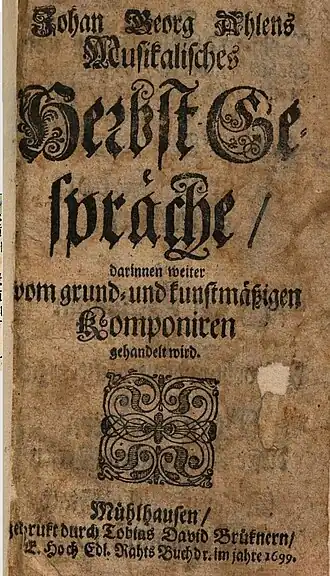 Johan Georg Ahlens
Musikalisches
Herbst Ge-
spräche /
darinnen weiter
vom grund- und kunstmäßigen
Komponiren
gehandelt wird.
Mühlhausen /
gedrukt durch Tobias David Brüknern /
E. Hoch Edl. Rahts Buchdr. im jahre 1699.